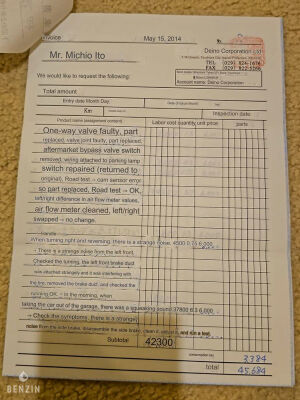 Invoice
May 15, 2014
Mr. Michio Ito
Deino Corporation Ltd
TEL (029) 824-1674
FAX (029)
We would like to request the following:
Account name: Deino Corporation
Total amount
Entry date Month Day
Km
Inspection Due
Product name (assignment content)
Labor cost quantity, unit price
parts
One-way valve faulty, part
replaced, valve joint faulty, part replaced,
aftermarket bypass valve switch
removed, wiring attached to parking lamp
switch repaired (returned to
original), Road test → cam sensor error
so part replaced, Road test → OK,
left/right difference in air flow meter values,
air flow meter cleaned, left/right
swapped → no change.
When turning right and reversing, there is a strange noise, 4500 0.75 6,000
→ There is a strange noise from the left front.
Checked the turning, the left front brake duct
was attached strangely and it was interfering with
the tire, removed the brake duct, and checked the
running OK. → In the morning, when
taking the car out of the garage, there was a squeaking sound 37800 6.3 6,000
→ Check the symptoms, there is a strange
noise from the side brake, disassemble the side brake, clean it, adjust it, and run a test.
Subtotal
42300
consumption tax
3384
total
45,684
BENZIN